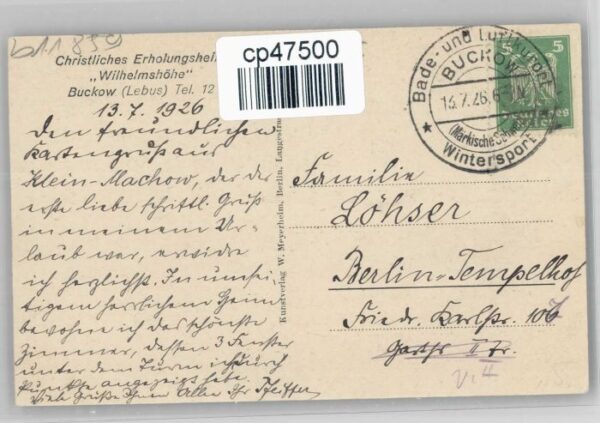 Christliches Erholungsheim
„Wilhelmshöhe"
Buckow (Lebus) Tel. 12
cp47500
Bade- und Luftkurort
BUCKOW
13.7.26.6
(Märkische Schweiz)
Wintersport
5
5
13.7.1926
Den freundlichen
Kartengruß aus
Klein-Machow, der der
erste liebe schriftl. Gruß
in meinem Ur-
laub war, erwidre
ich herzlichst. In umsei-
tigem herrlichem Heim
bewohne ich das schönste
Zimmer, dessen 3 Fenster
unter dem Turm ich durch
Punkte angezeigt habe.
Viele Grüße Ihnen Allen Ihr Pfeiffer
Kunstverlag W. Meyerheim, Berlin, Langestraße
Familie
Löhser
Berlin-Tempelhof
Friedr. Karlstr. 107
Gartf. II Tr.